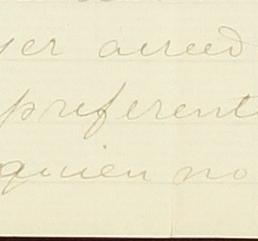 ser acreed
preferent
quien no